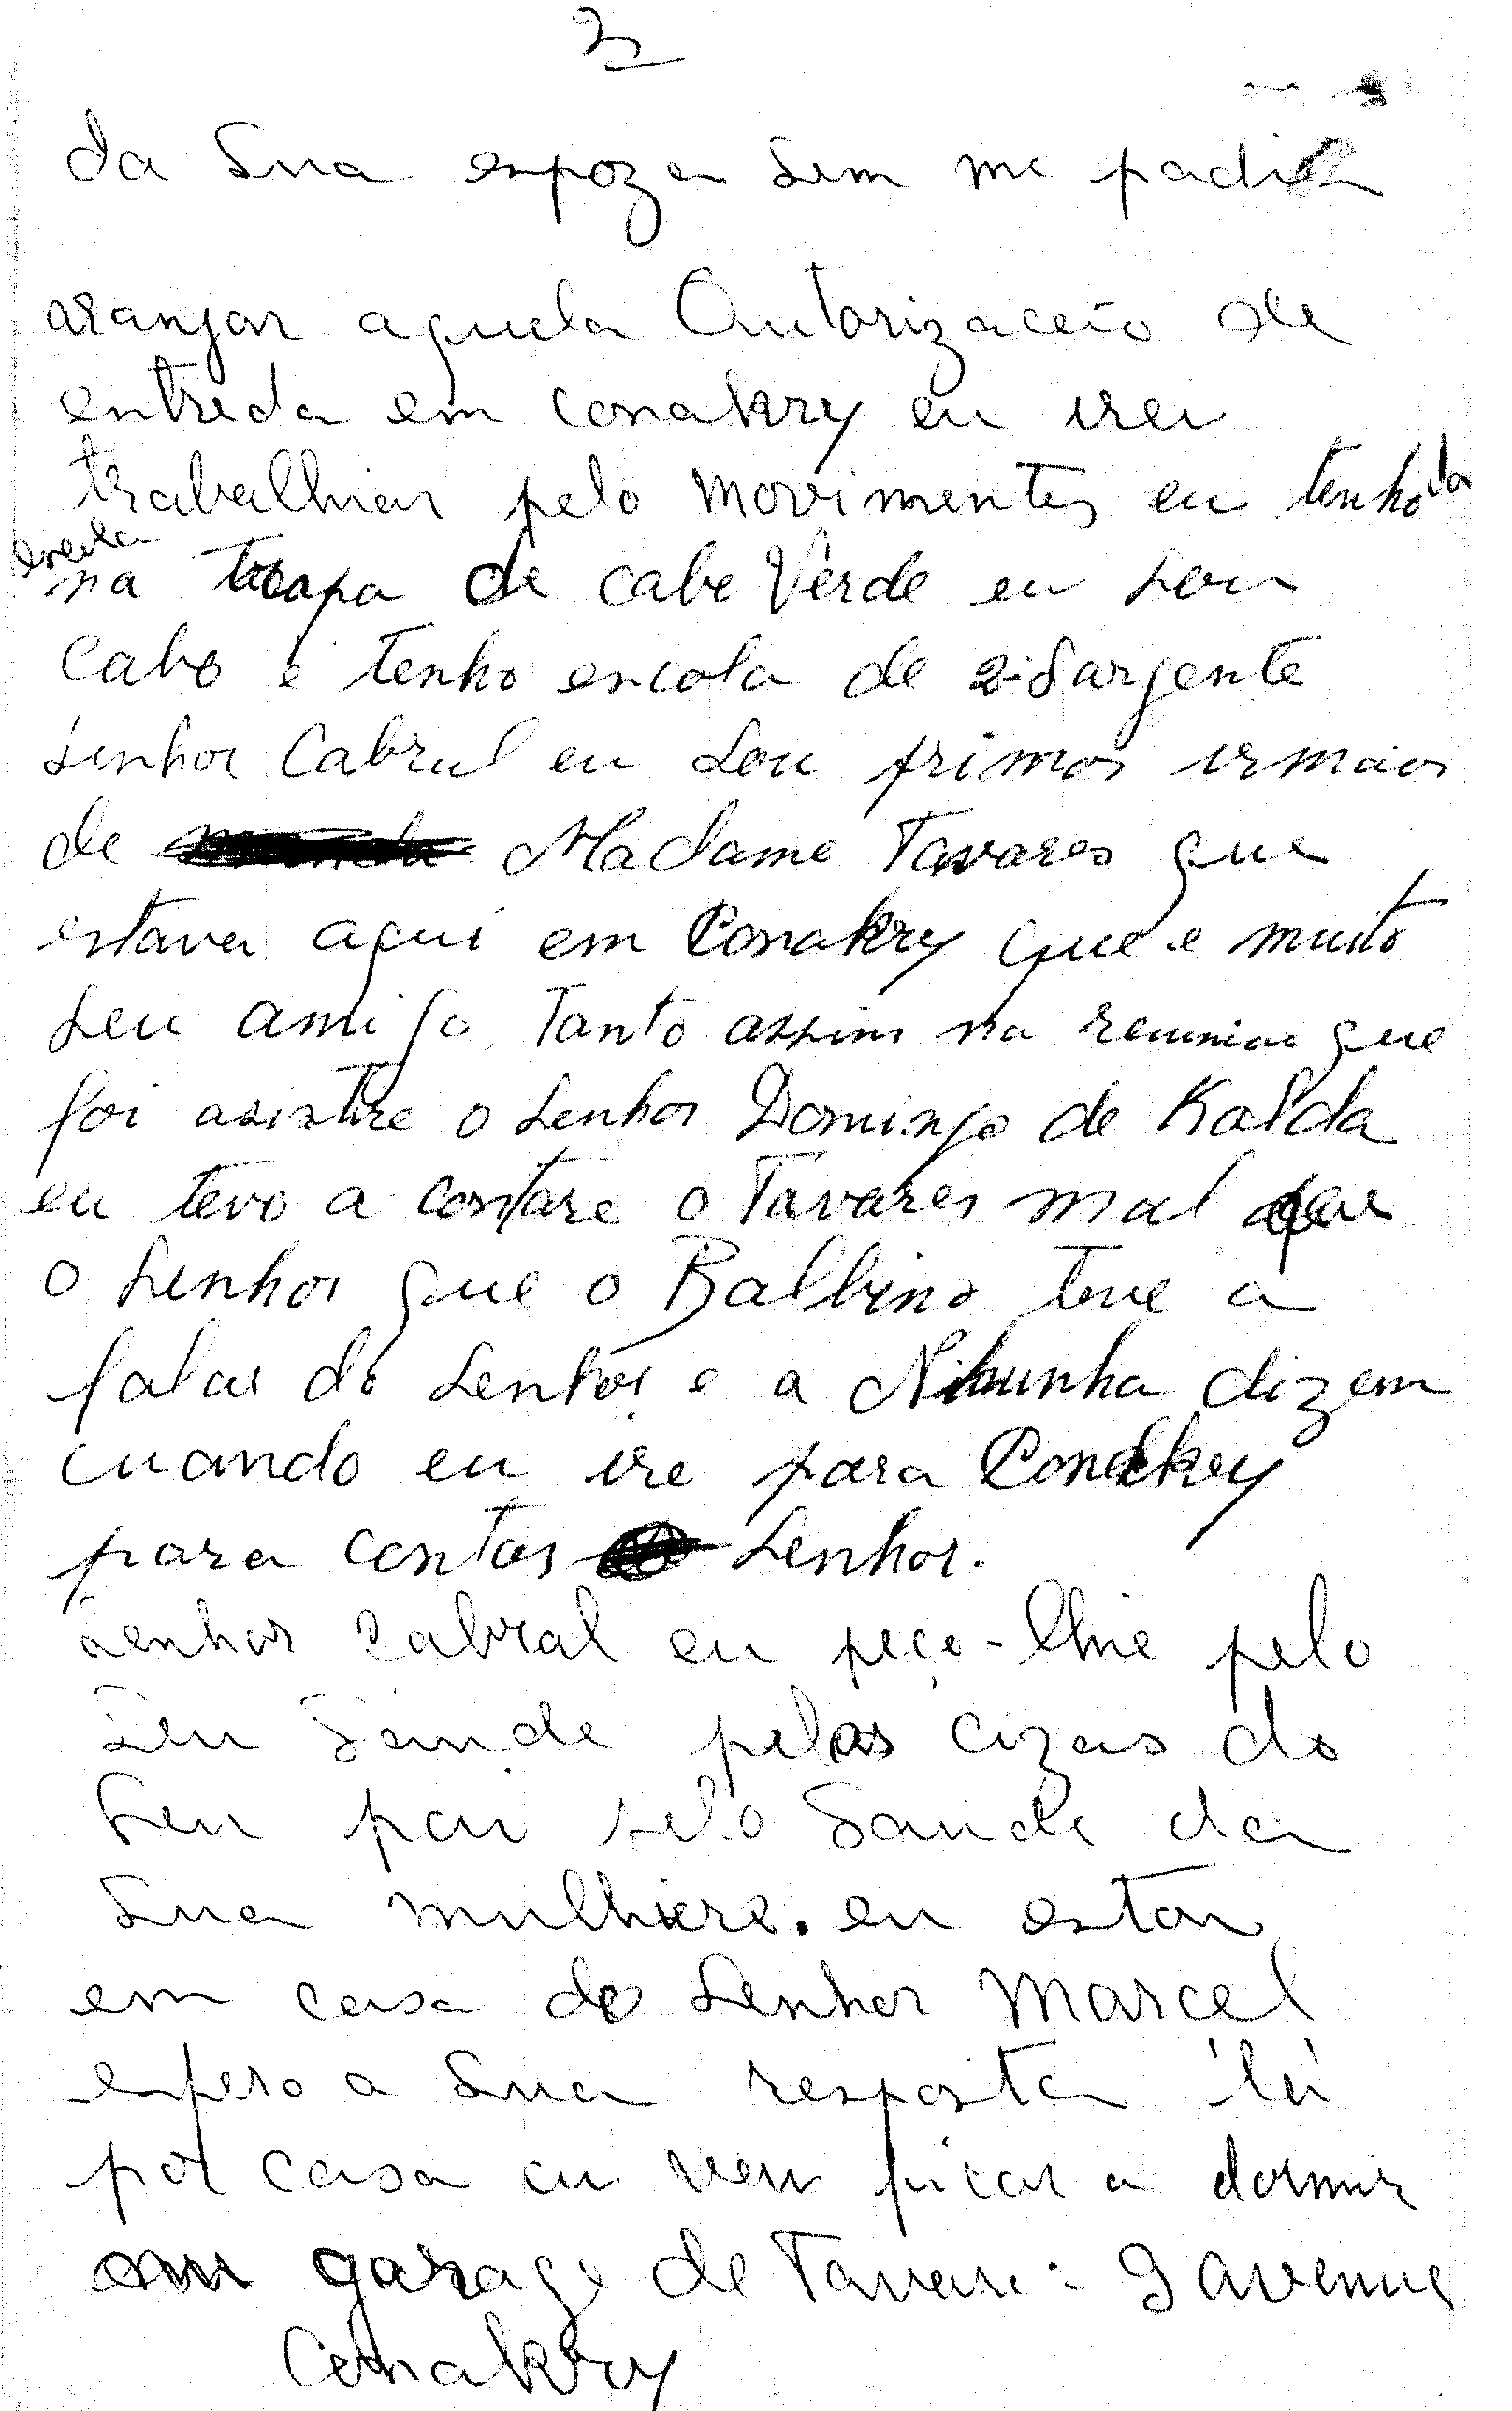 3
da Sua espoza Sem me padir
aranjar aquela Autorizacão de
entreda em conakry eu irei
trabalhiar pelo movimentes eu tenho la
na tropa de cabe Verde eu sou
Cabo e tenho escola de 2-Sargente
senhor Cabral eu sou primos irmãos
de Madame Tavares que
estava aqui em Conakry que e muito
seu amigo. Tanto assim na reuniao que
foi asistire o senhor Domingo de Kalda
eu tevo a contare o Tavares mal que
o senhor que o Balbino teve a
falar do senhor e a dizem
cuando eu ire para Conakry
para contar senhor.
senhor Cabral eu peço-lhie pelo
seu Sande pelas cizas do
seu pai pelo Saude da
sua mulhiere. eu estou
em casa do senhor Marcel
espero a sua resposta lá
por casa eu venu ficar a dormir
garage de Tavares: 9 avenue
Conakry